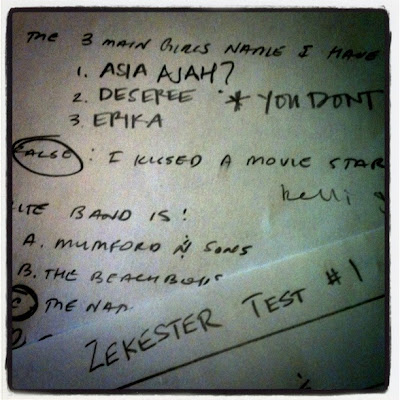 THE 3 MAIN GIRLS NAME I HAVE
1. ASIA AJAH?
2. DESEREE * YOU DONT
3. ERIKA
FALSE: I KISSED A MOVIE STAR
Kelli
BAND IS!
A. MUMFORD N SONS
B. THE BEACH BOYS
C THE
ZEKESTER TEST #1